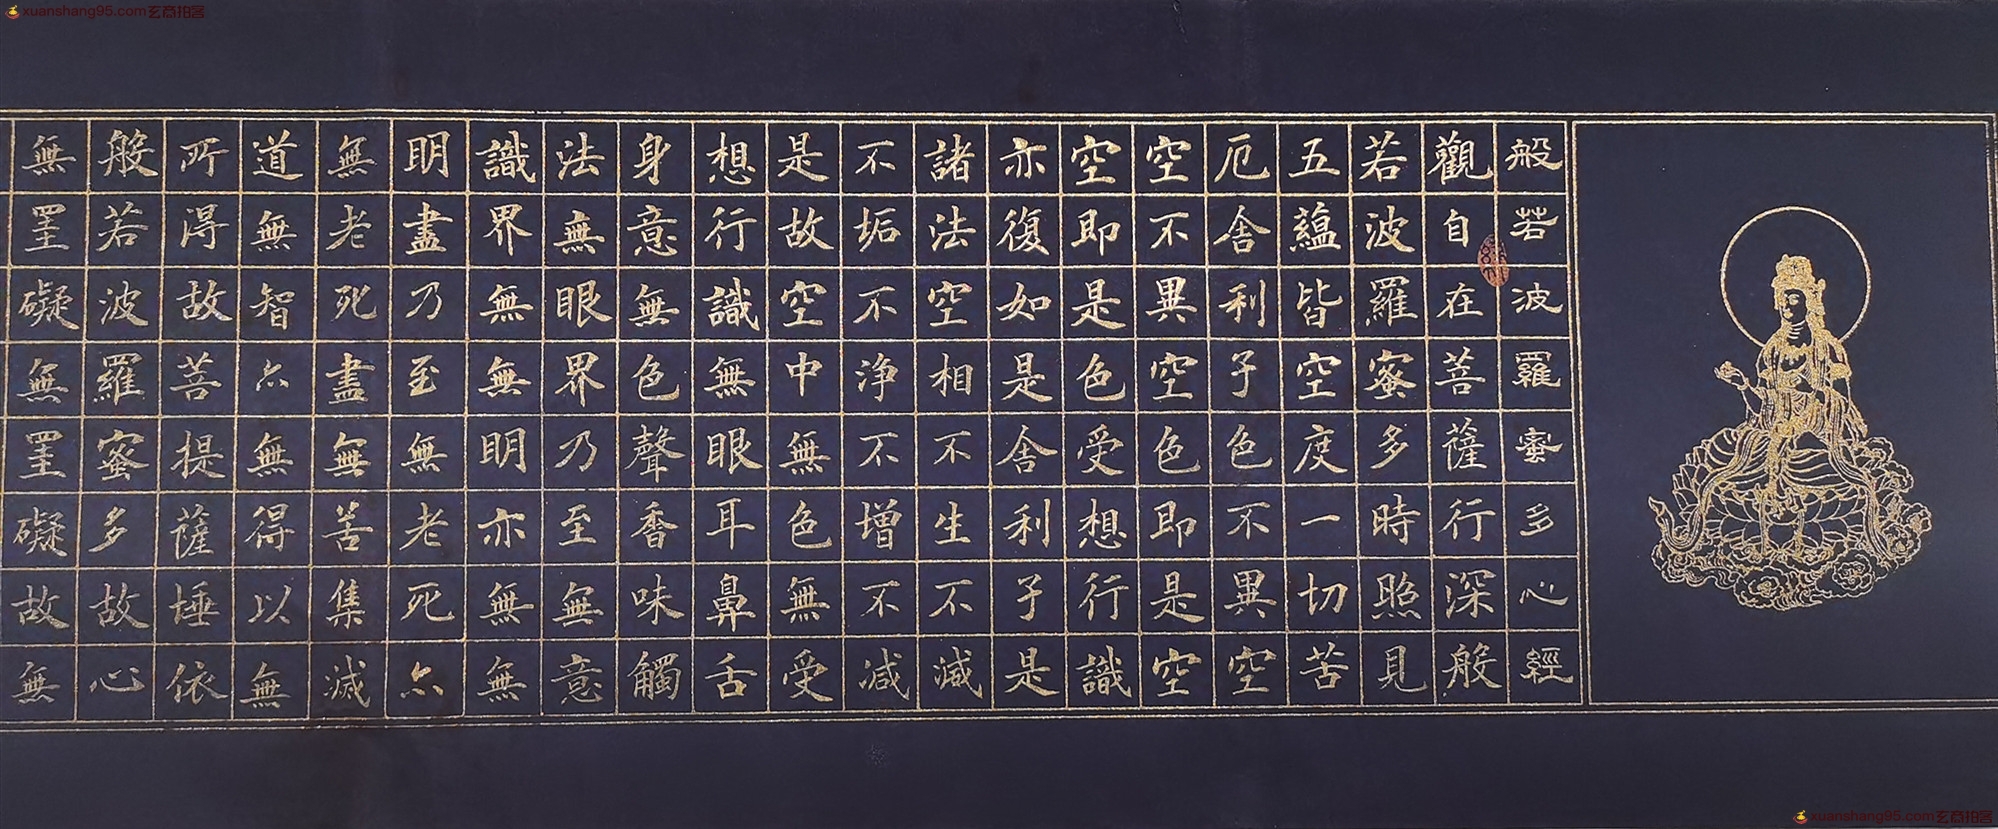 xuanshang95.com玄商拍客
般若波羅蜜多心經
觀自在菩薩行深般
若波羅蜜多時照見
五蘊皆空度一切苦
厄舍利子色不異空
空不異空色即是空
空即是色受想行識
亦復如是舍利子是
諸法空相不生不減
不垢不淨不增不減
是故空中無色無受
想行識無眼耳鼻舌
身意無色聲香味觸
法無眼界乃至無意
識界無無明亦無無
明盡乃至無老死亦
無老死盡無苦集滅
道無智亦無得以無
所得故菩提薩埵依
般若波羅蜜多故心
無罣礙無罣礙故無
xuanshang95.com玄商拍客